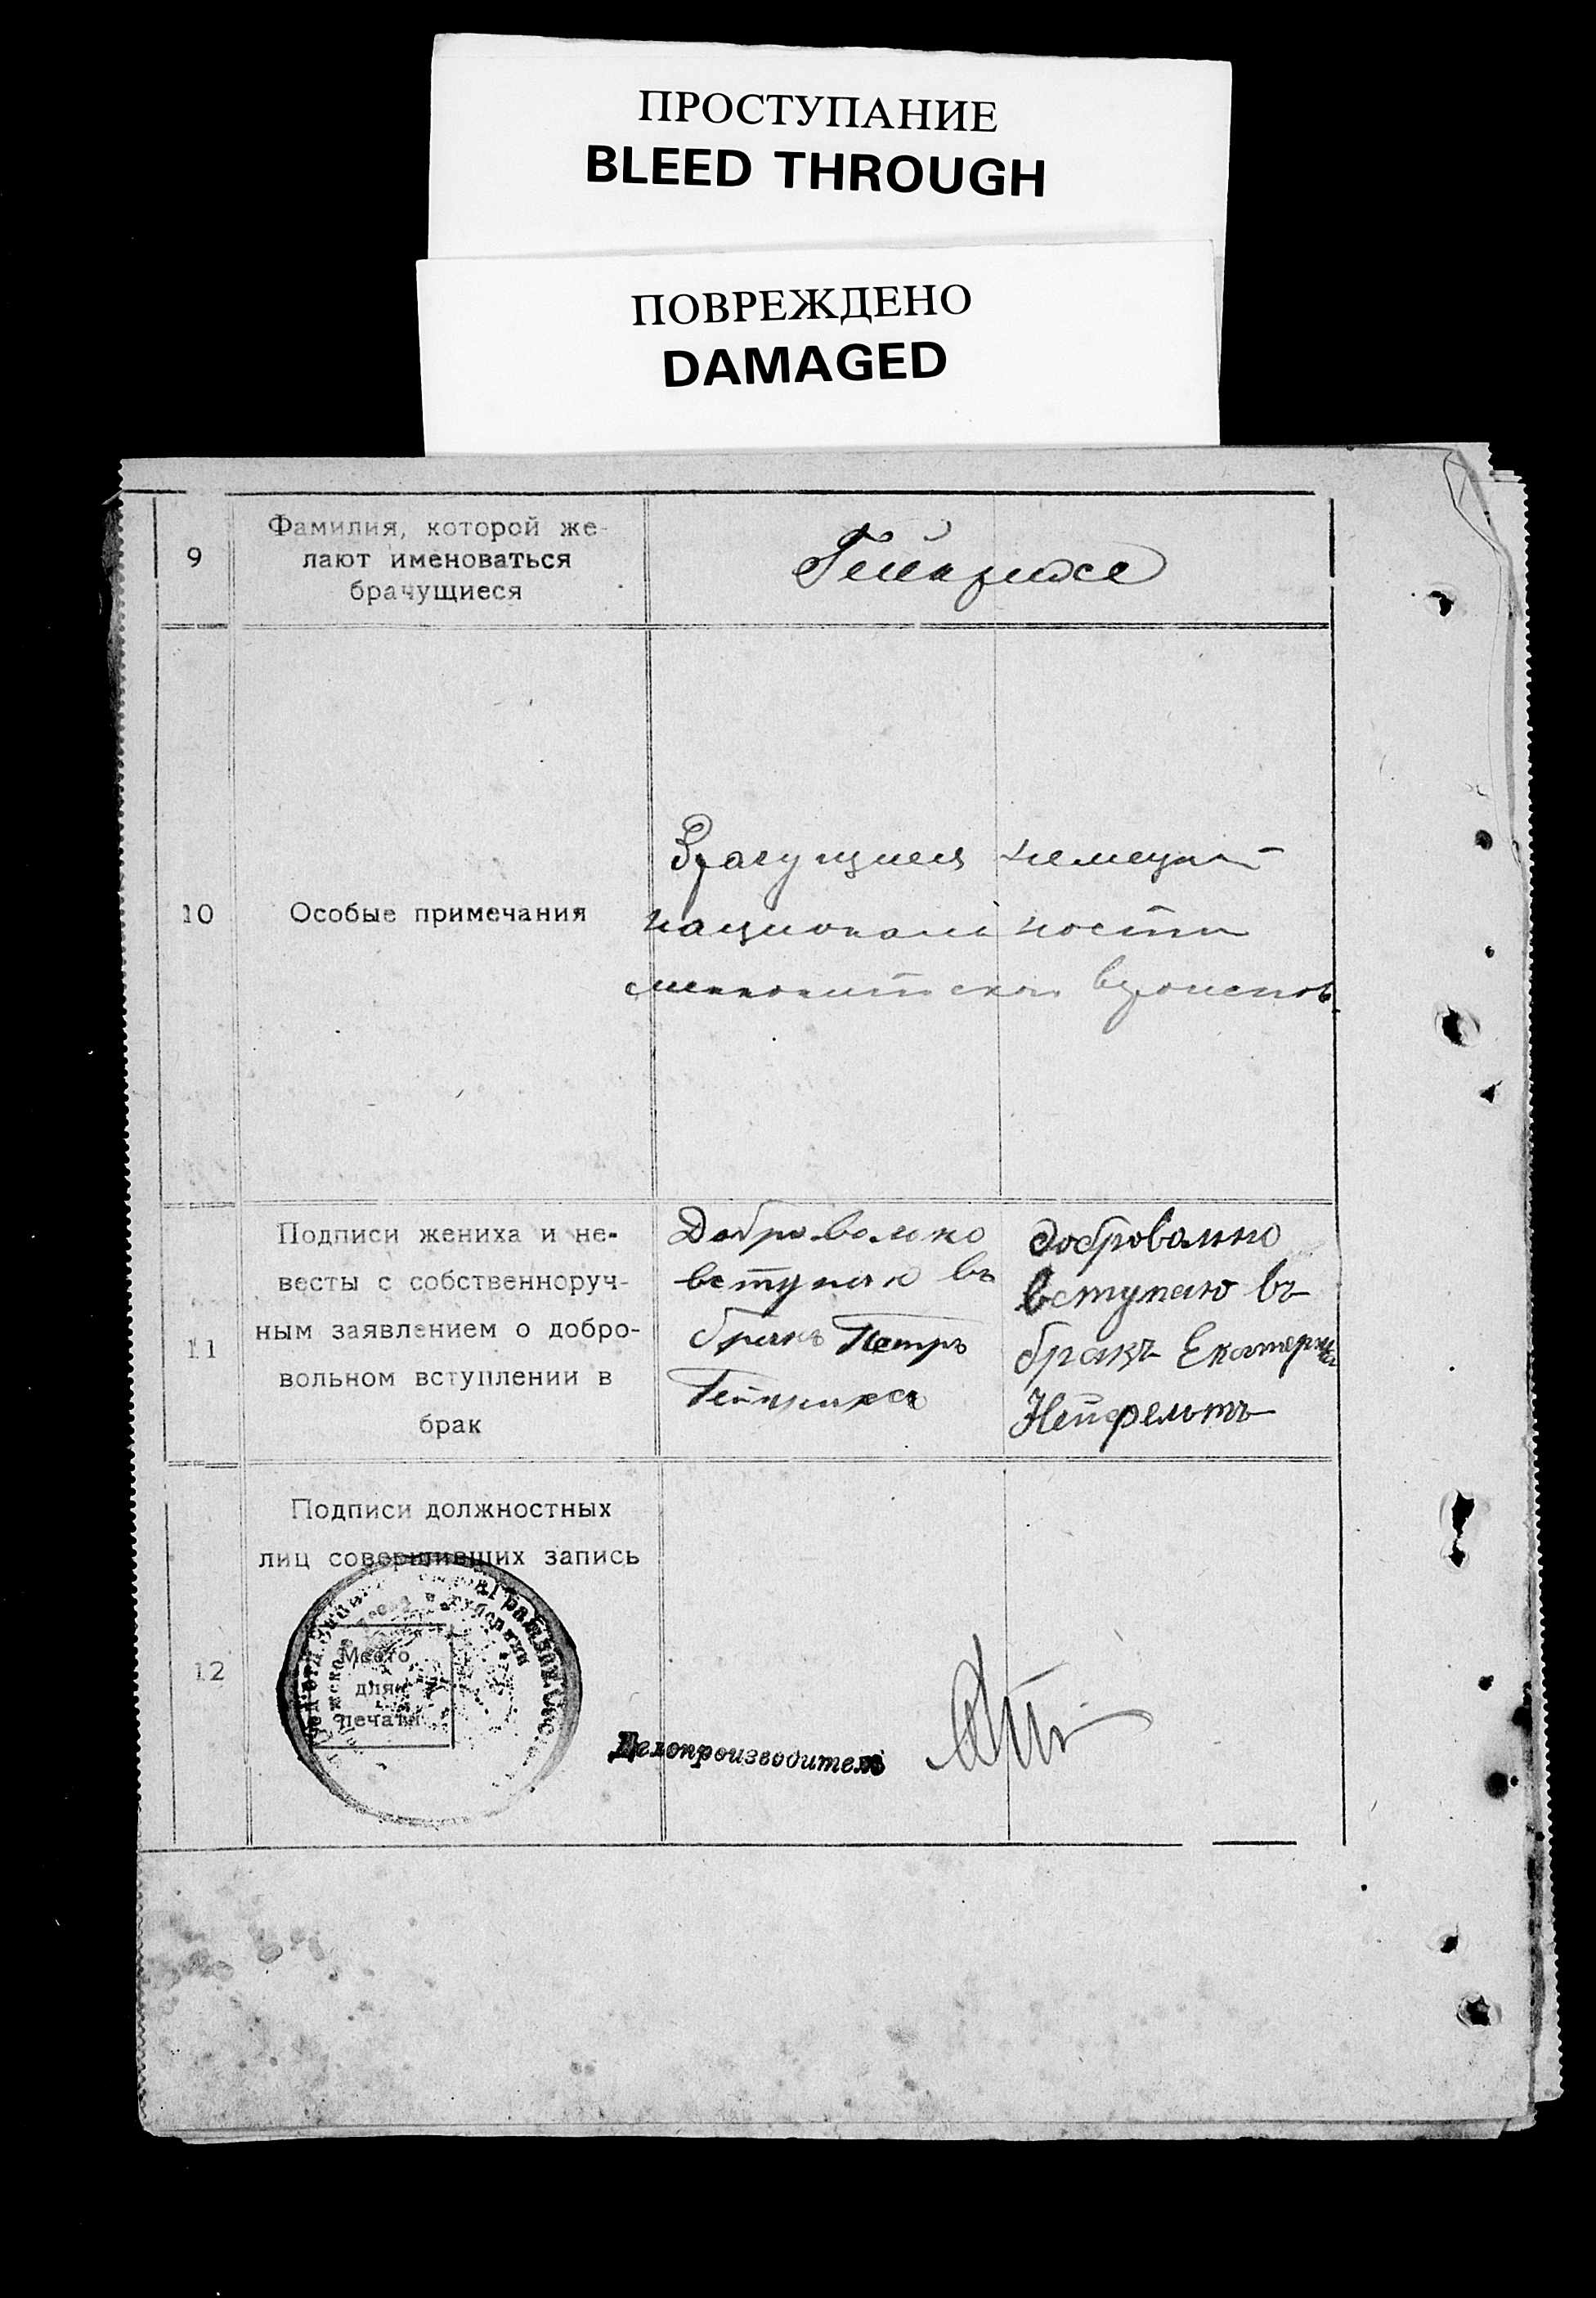 ПРОСТУПАНИЕ
BLEED THROUGH
ПОВРЕЖДЕНО
DAMAGED
9
Фамилия, которой же-
лают именоваться
брачущиеся
10
Особые примечания
Брачущиеся немецкой
национальности
11
Подписи жениха и не-
весты с собственноруч-
ным заявлением о добро-
вольном вступлении в
брак
Добровольно
вступаю въ
бракъ Петръ
Добровольно
вступаю въ
бракъ Екатерина
Нейфельтъ
12
Подписи должностных
лиц совершивших запись
Место
для
печати
Делопроизводитель